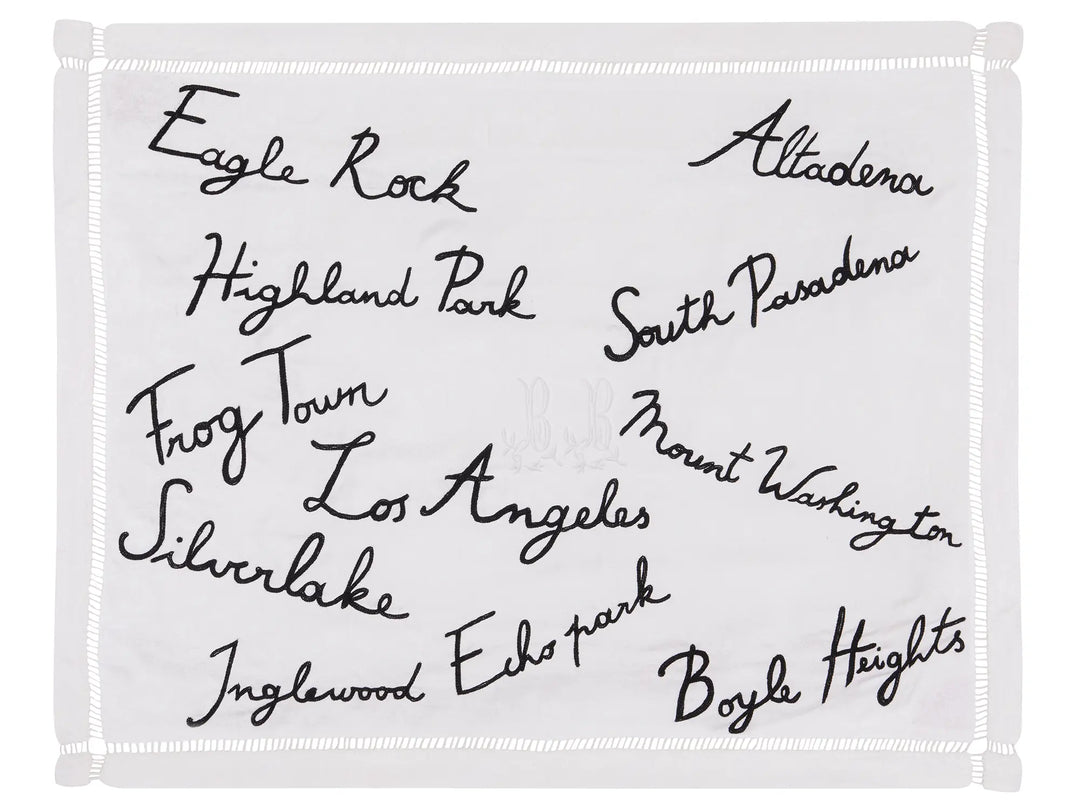 Eagle Rock
Altadena
Highland Park
South Pasadena
Frog Town
BB
Mount Washington
Los Angeles
Silverlake
Echo park
Inglewood
Boyle Heights